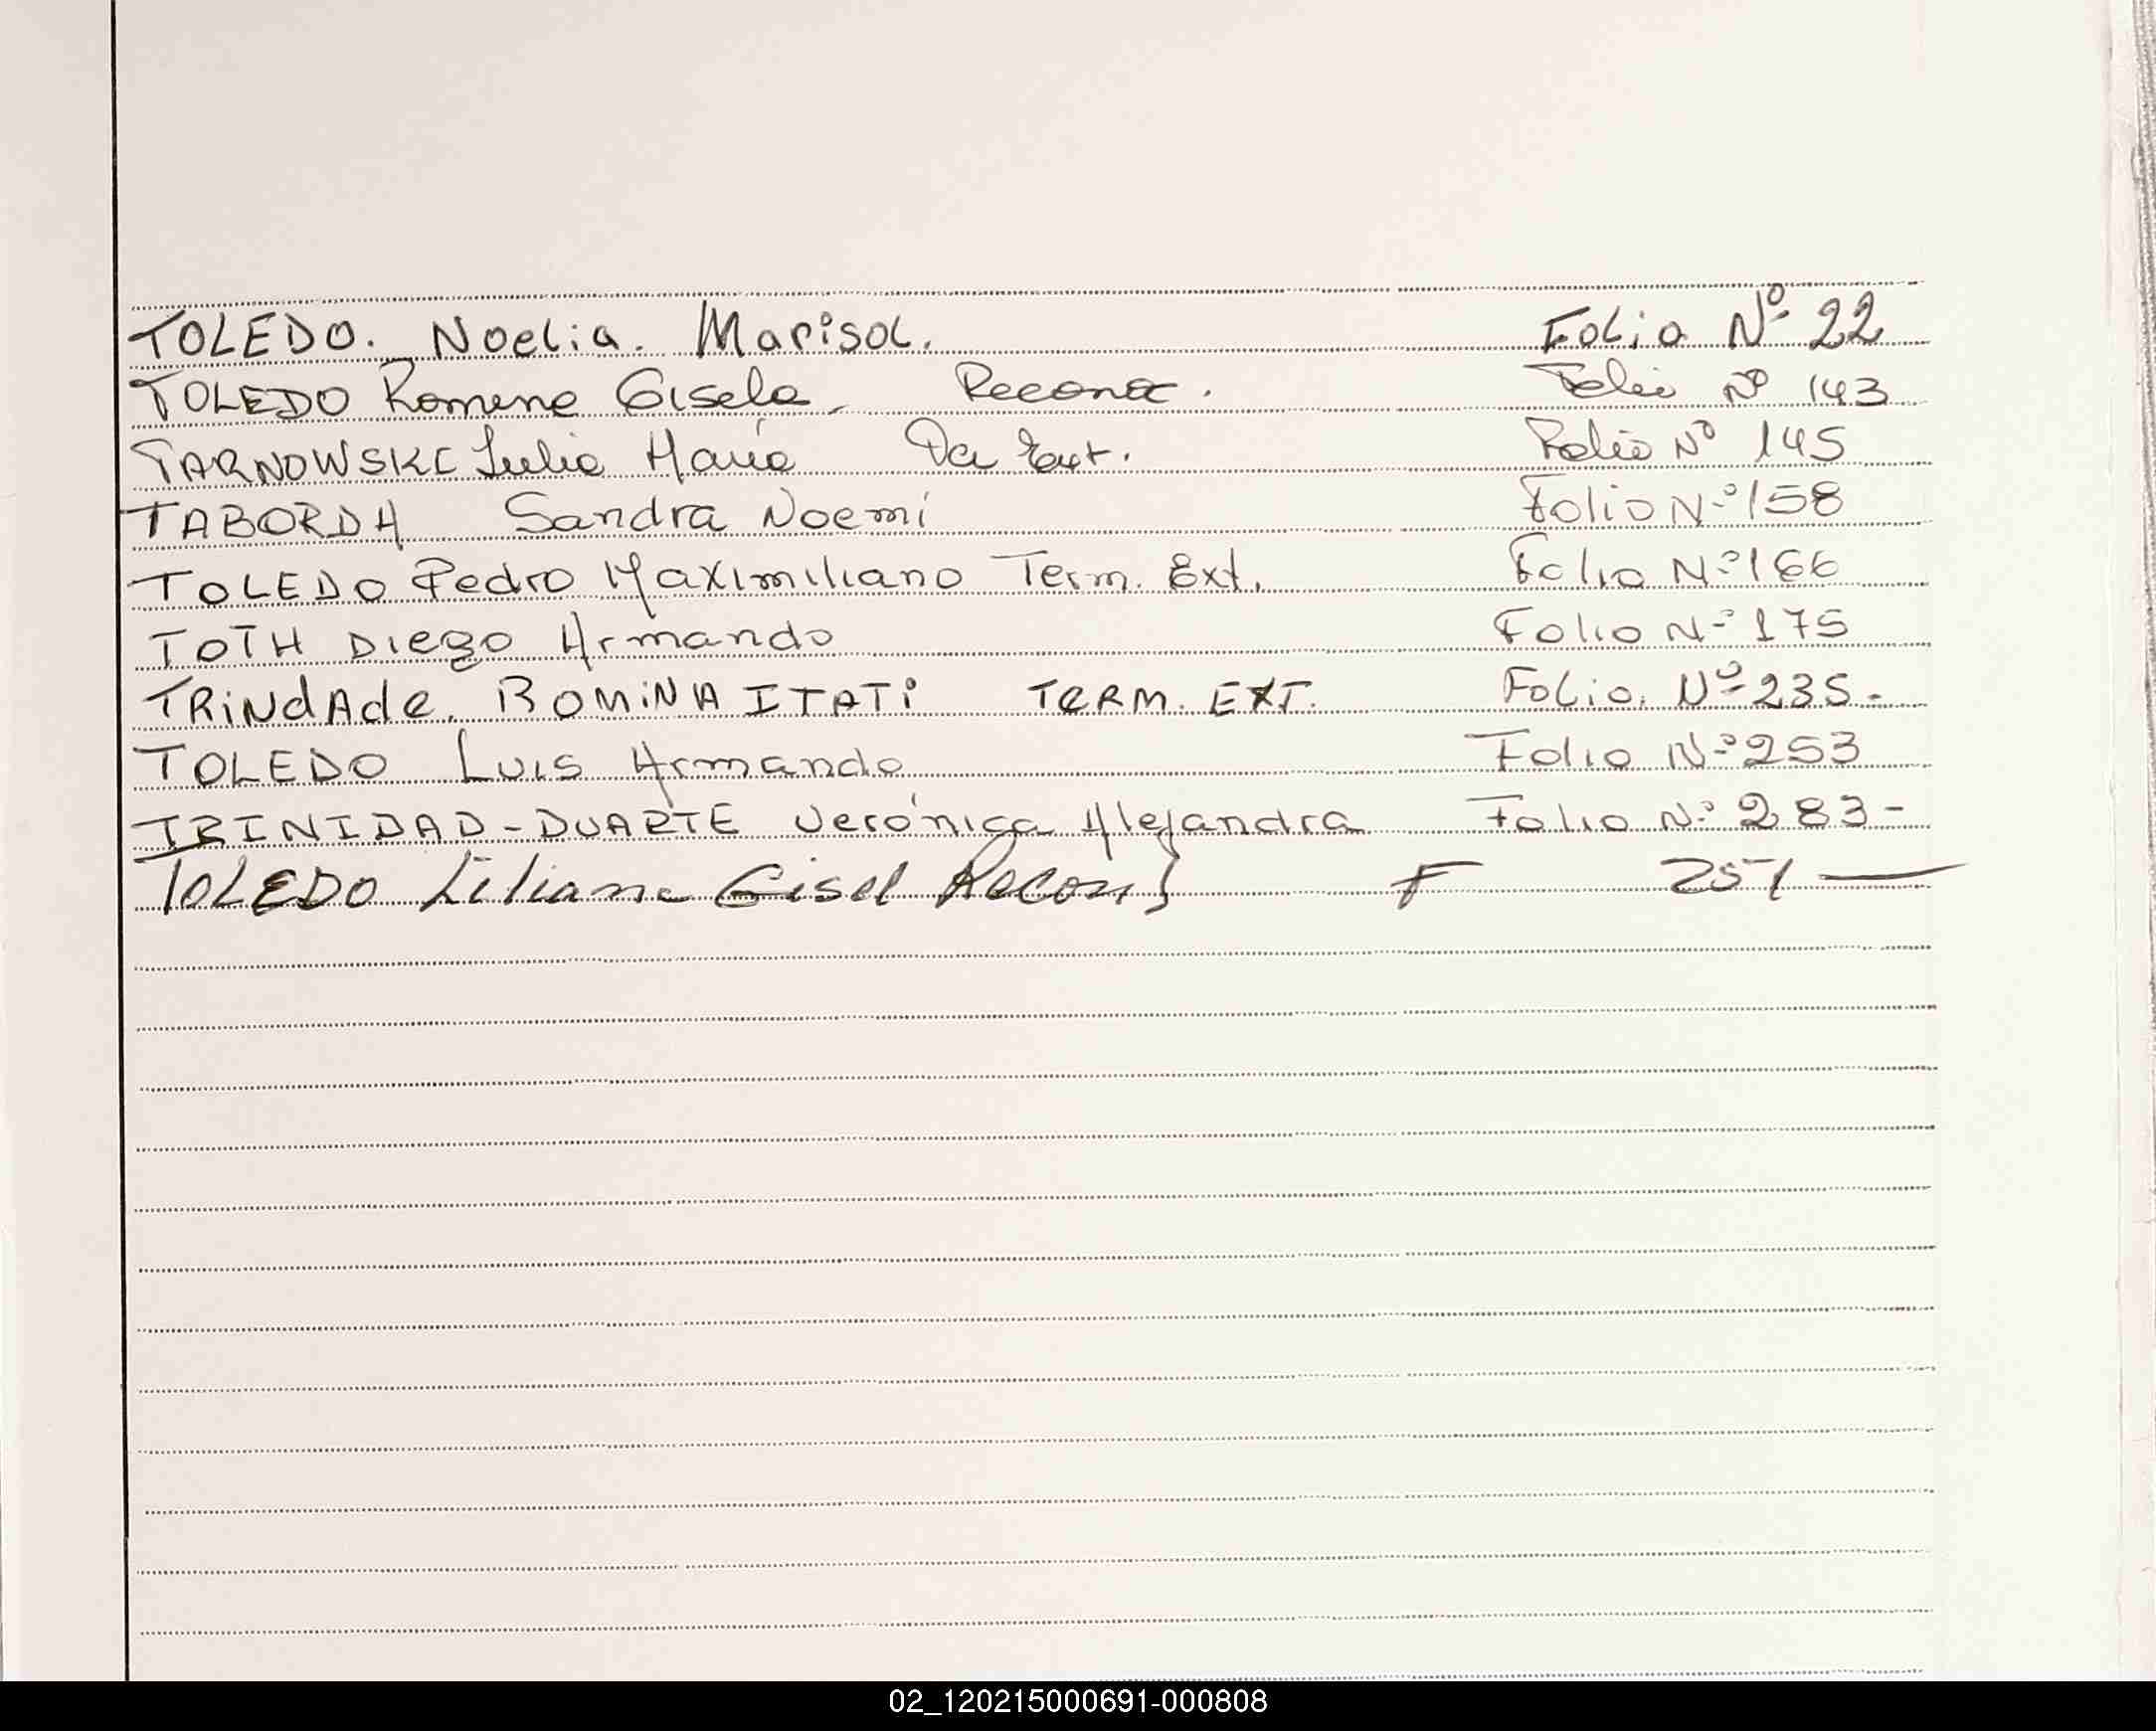 TOLEDO. Noelia. Marisol. Folio Nº 22
TOLEDO Romina Gisela. Reconoc. Folio Nº 143
TARNOWSKI Julio María Ext. Folio Nº 145
TABORDA Sandra Noemí Folio Nº 158
TOLEDO Pedro Maximiliano Term. Ext. Folio Nº 166
TOTH Diego Armando Folio Nº 175
TRiNdAde. ROMiNA ITATi TeRM. EXT. Folio. Nº 235-
TOLEDO Luis Armando Folio Nº 253
TRINIDAD-DUARTE Verónica Alejandra Folio Nº 283-
TOLEDO Liliana Gisel Recon F 257 —
02_120215000691-000808